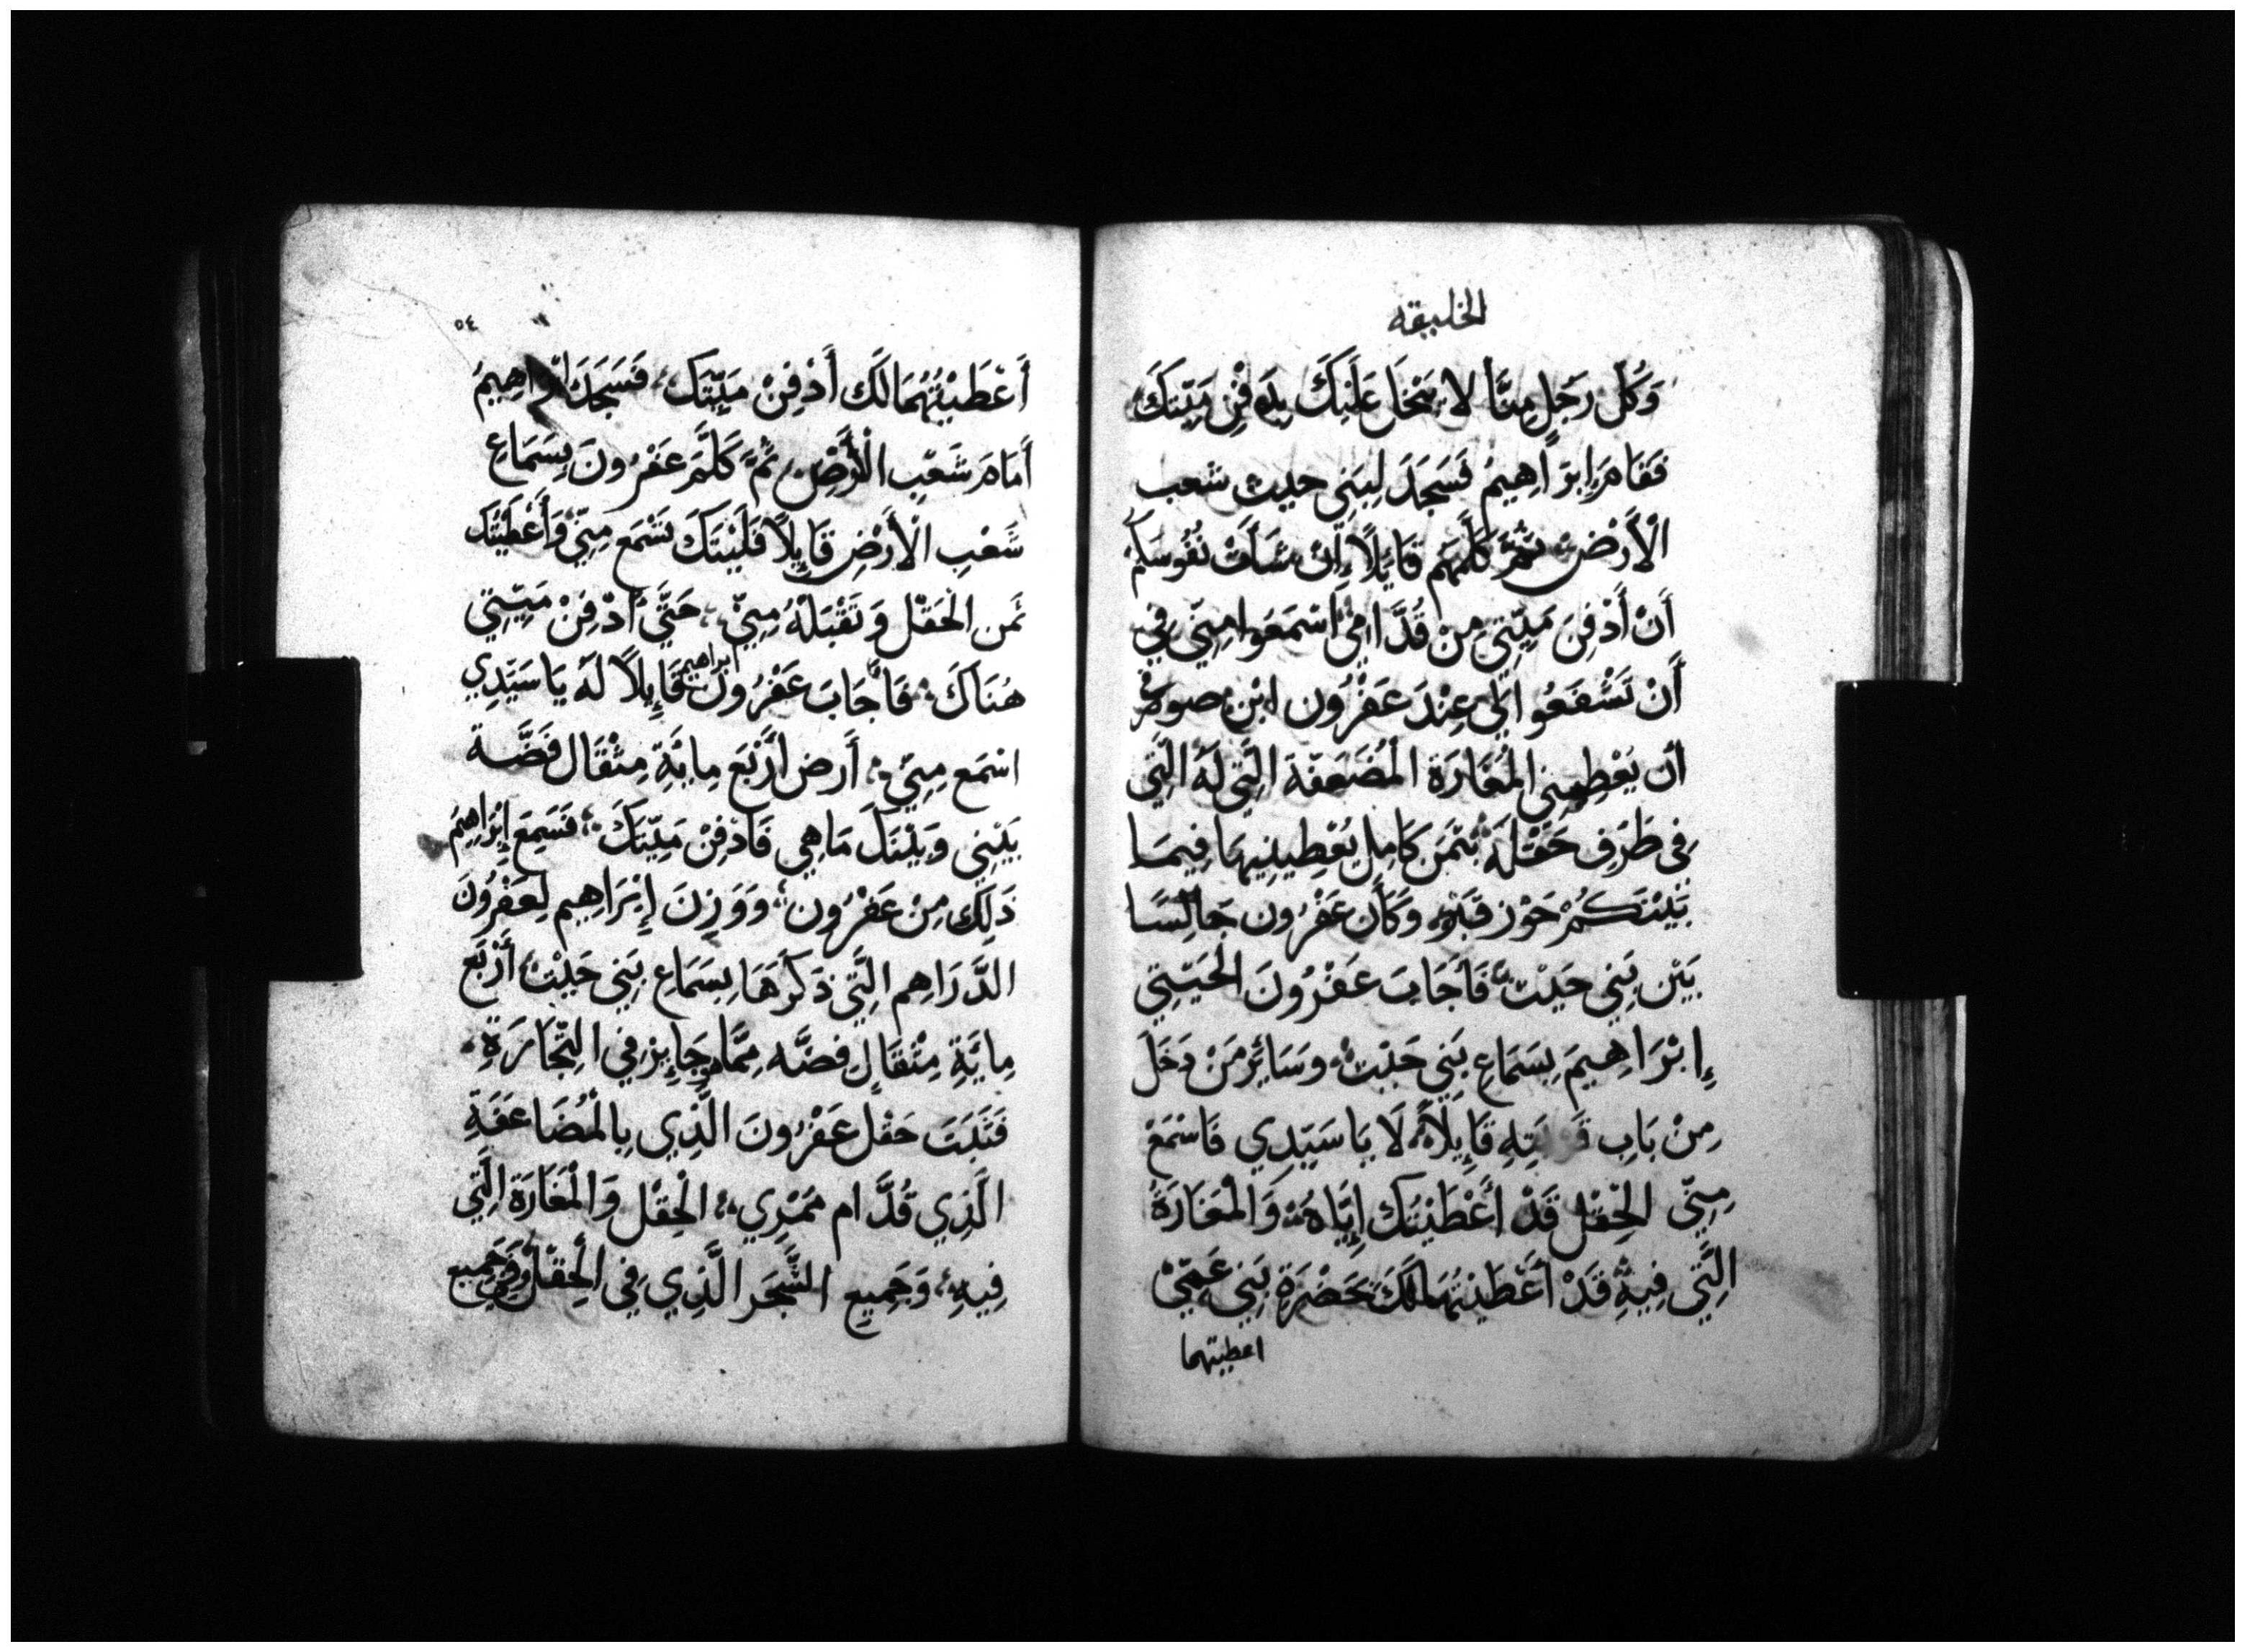 الخليقه
وَكُلّ رَجَلٍ مِنَّا لا يَنْخَا عَلَيْكَ يِدَفْنِ مَيّتكَ
فَقَامَ إِبرَاهِيمُ فَسَجَدَ لِبَنِي حيث شعب
الْأَرْضِ ثُمَّ كَلَّمَهم قَايِلًا إِن شَأَتْ نُفُوسَكُم
أَنْ أَدْفِنَ مَيّتِي مِنْ قُدَّامِي اَسْمَعُوا مِنّي فِي
أَنْ تَشْفَعُوا لِي عِنْدَ عَفْرُون ابْنِ صوحر
أن يُعْطِينِي المُغَارَة المُضَعَفَة الَّتِي لَهُ الَّتِي
فِي طَرَفِ حَقْلَهُ بثَمَنٍ كَامِلٍ يُعْطِينِيهَا فِيمَا
بَيْنَكُمْ حَوْز قَبْرٍ وَكَان عَفْرُون جَالِسًا
بَيْن بَنِي حَيْث فَأَجَابَ عَفْرُونَ الْحَيّثِي
إِبْرَاهِيمَ بِسَمَاعِ بَنِي حَيْث وسَائِر مَنْ دَخَلَ
مِنْ بَابِ قَريَتِهِ قَايِلًا لَا يَا سَيّدِي فَاسْمَعْ
مِنّي الحَقْل قَدْ أَعْطَيْتُكَ إِيَّاهُ وَالْمَغَارَةُ
الَّتِي فِيهِ قَدْ أَعْطَيْتُهَا لَكَ بَحَضْرَةِ بَنِي عَمّيْ
اعطيتهما
٥٤
أَعْطَيْتُهُمَا لَكَ أَدْفِنْ مَيّتَكَ فَسَجَدَ ابْرَاهِيمُ
أَمَامَ شَعْبِ الْأَرْضِ ثُمَّ كَلَّمَ عَفْرُونَ بِسَمَاعِ
شَعْبِ الْأَرْضِ قَايِلاً فَلَيْتَكَ تَسْمَع مِنّي وَأَعْطَيْتُكَ
ثَمن الْحَقْل وَتَقْبَلهُ مِنّي حَتَّى أَدْفِنْ مَيّتِي
هُنَاكَ فَأَجَابَ عَفْرُونَ ابراهيم قَايِلاً لَهُ يَا سَيّدِي
اسْمَع مِنّي أَرض أَرْبَع مِايَةِ مِثْقَال فَضَّة
بَيْنِي وَبَيْنَكَ مَاهِي فَادْفِنْ مَيّتَكَ فَسَمِعَ إِبْرَاهِيمُ
ذَلِك مِنْ عَفْرُون وَوَزِنَ إِبْرَاهِيم لِعَفْرُونَ
الدَّرَاهِم الَّتِي ذَكَرَهَا بِسَمَاعِ بَنِي حَيْث أَرْبَع
مِايَةِ مِثْقَالِ فِضَّه مِمَّا هو جَايِز فِي التِّجَارَةِ
فَثَبَتَ حَقْل عَفْرُونَ الَّذِي بِالْمُضَاعَفَةِ
الَّذِي قُدَّام مَمْرِي الْحِقْل وَالْمَغَارَةُ الَّتِي
فِيهِ وَجَمِيع الشَّجَر الَّذِي فِي الْحِقْل وَجَمِيع